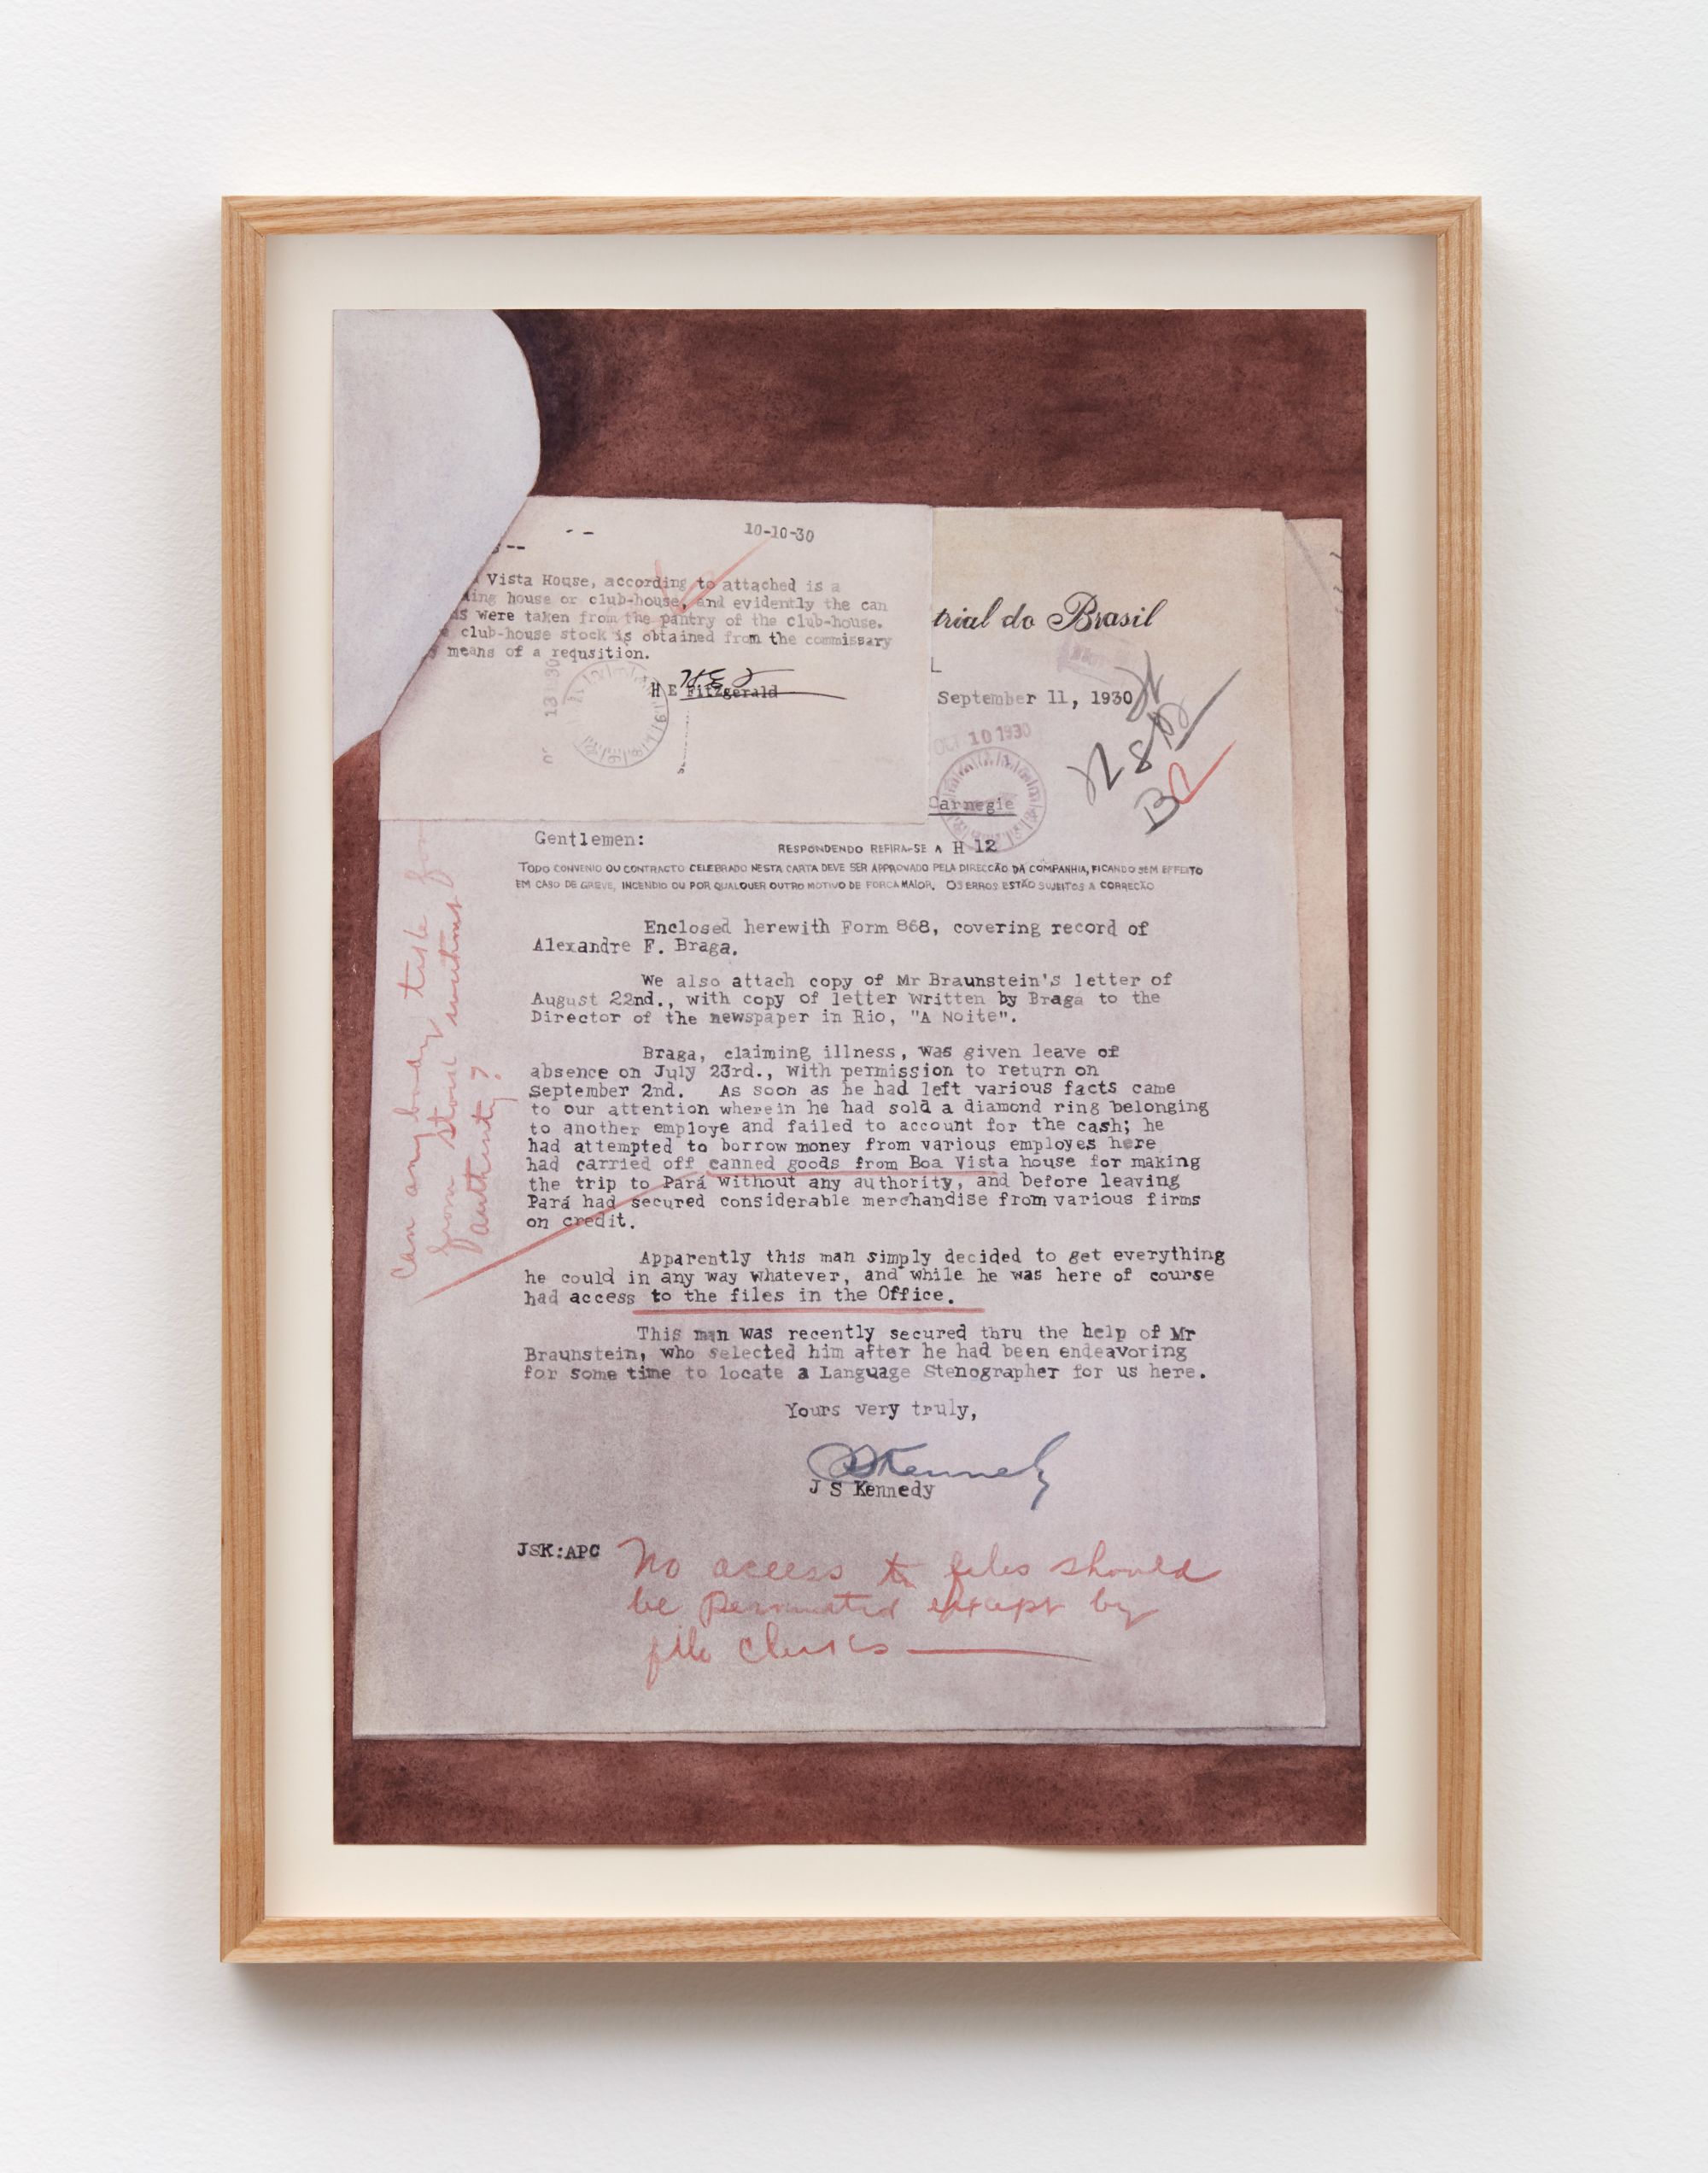 10-10-30
Vista House, according to attached is a
ding house or club-house, and evidently the can
ds were taken from the pantry of the club-house.
club-house stock is obtained from the commissary
y means of a requsition.
H E Fitzgerald
13 30
trial do Brasil
L
September 11, 1930
OCT 10 1930
Carnegie
Gentlemen:
RESPONDENDO REFIRA-SE A H 12
TODO CONVENIO OU CONTRACTO CELEBRADO NESTA CARTA DEVE SER APPROVADO PELA DIRECCÃO DA COMPANHIA, FICANDO SEM EFFEITO
EM CASO DE GREVE, INCENDIO OU POR QUALQUER OUTRO MOTIVO DE FORCA MAIOR. OS ERROS ESTÃO SUJEITOS A CORRECÃO
Enclosed herewith Form 868, covering record of
Alexandre F. Braga.
We also attach copy of Mr Braunstein's letter of
August 22nd., with copy of letter written by Braga to the
Director of the newspaper in Rio, "A Noite".
Braga, claiming illness, was given leave of
absence on July 23rd., with permission to return on
September 2nd. As soon as he had left various facts came
to our attention wherein he had sold a diamond ring belonging
to another employe and failed to account for the cash; he
had attempted to borrow money from various employes here
had carried off canned goods from Boa Vista house for making
the trip to Pará without any authority, and before leaving
Pará had secured considerable merchandise from various firms
on credit.
Apparently this man simply decided to get everything
he could in any way whatever, and while he was here of course
had access to the files in the Office.
This man was recently secured thru the help of Mr
Braunstein, who selected him after he had been endeavoring
for some time to locate a Language Stenographer for us here.
Yours very truly,
JSKennedy
J S Kennedy
JSK:APC
No access to files should
be permitted except by
file clerks
Can anybody take
from Stores without
authority?